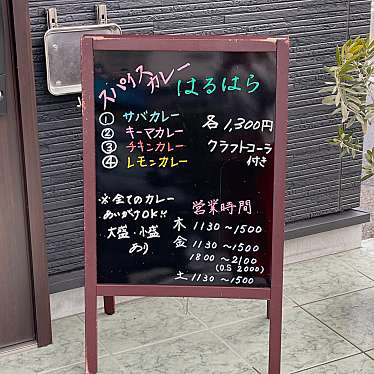 スパイスカレー
はるはら
① サバカレー
② キーマカレー
③ チキンカレー
④ レモンカレー
各1,300円
クラフトコーラ
付き
※全てのカレー
あいがけOK!!
大盛・小盛
あり
営業時間
木 1130〜1500
金 1130〜1500
1800〜2100
(O.S 2000)
土 1130〜1500